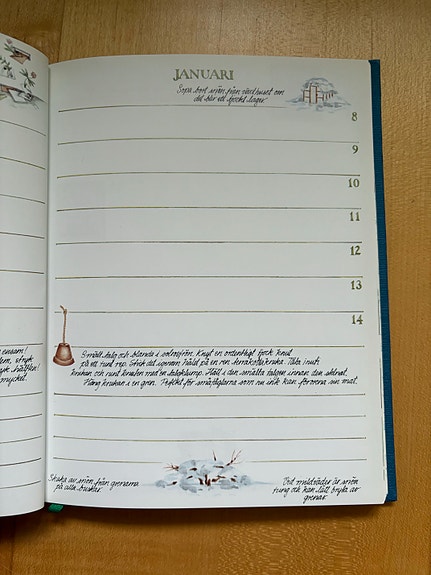 JANUARI
Sopa bort snön från växthuset om
det blir ett tjockt lager
8
9
10
11
12
13
14
Smält talg och blanda i solrosfrön. Knyt en ordentligt tjock knut
på ett tunt rep. Stick det igenom hålet på en ren terrakottakruka. Täta inuti
krukan och runt knuten med en talgklump. Häll i den smälta talgen innan den stelnat.
Häng krukan i en gren. Perfekt för småfåglarna som nu inte kan förorena sin mat.
Skaka av snön från grenarna
på alla buskar.
Vid mildväder är snön
tung och kan lätt bryta av
grenar.
ensam!
mycket.